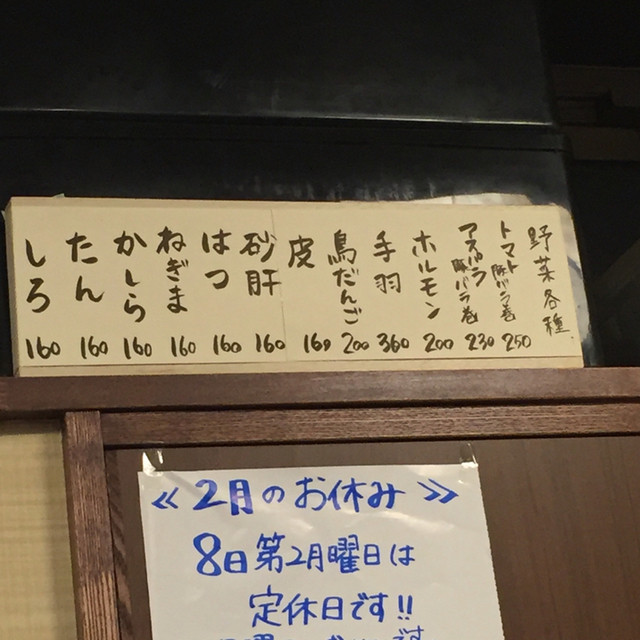 野菜各種
トマト豚バラ巻 250
アスパラ豚バラ巻 230
ホルモン 200
手羽 360
鳥だんご 200
皮 160
砂肝 160
はつ 160
ねぎま 160
かしら 160
たん 160
しろ 160
≪2月のお休み≫
8日第2月曜日は
定休日です!!